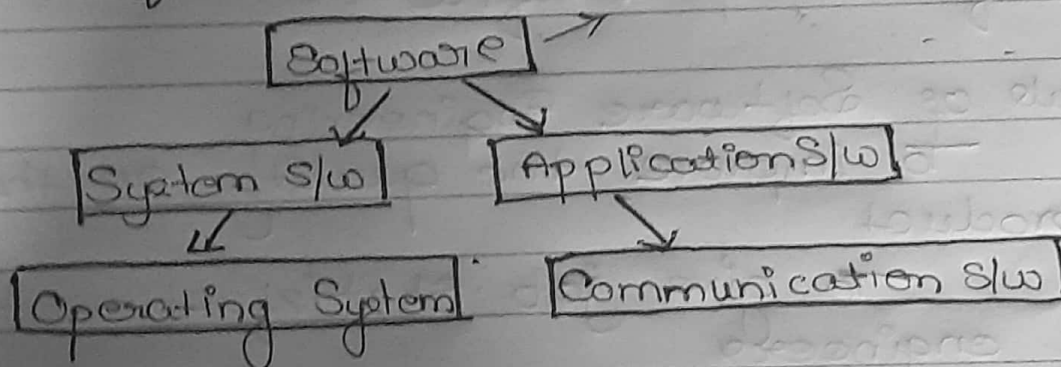 Software
System S/w Application S/w
Operating System Communication S/w